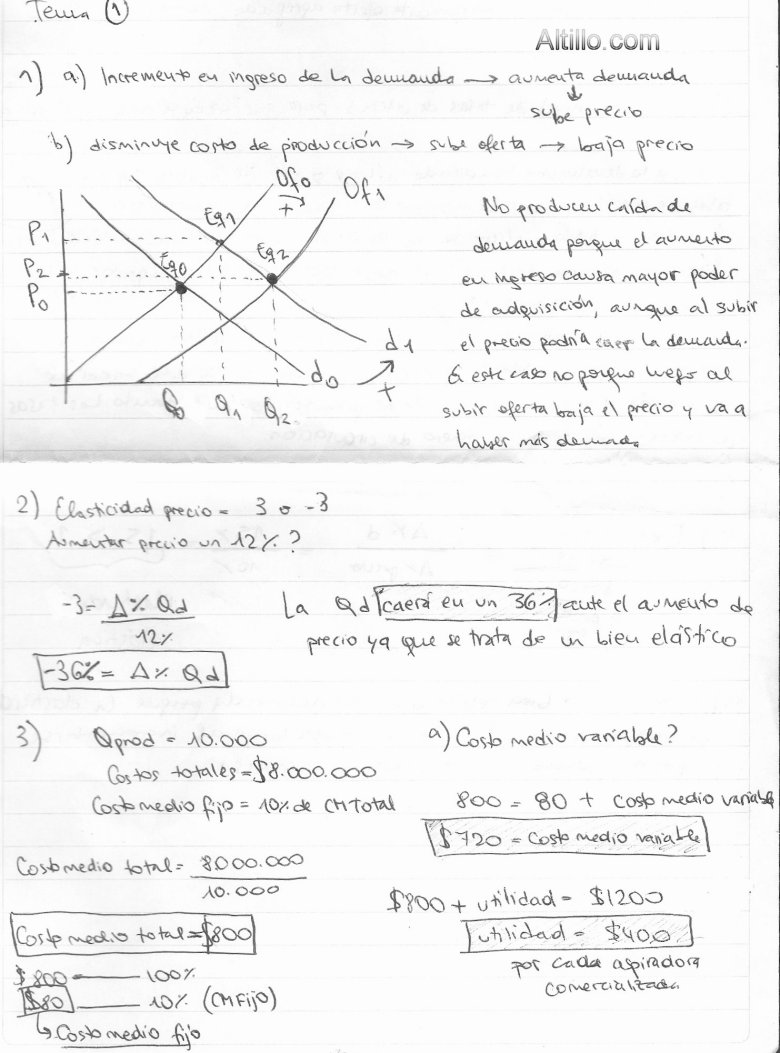 Tema ①
Altillo.com
1) a.) Incremento en ingreso de la demanda → aumenta demanda
↓
sube precio
b) disminuye costo de producción → sube oferta → baja precio
Of0
+
Of1
P1
P2
P0
Eq1
Eq0
Eq2
d1
d0
+
Q0 Q1 Q2
No producen caída de
demanda porque el aumento
en ingreso causa mayor poder
de adquisición, aunque al subir
el precio podría caer la demanda.
este caso no porque luego al
subir oferta baja el precio y va a
haber más demanda
2) Elasticidad precio = 3 o -3
Aumentar precio un 12%?
-3 = Δ% Qd
12%
-36% = Δ% Qd
La Qd caerá en un 36% ante el aumento de
precio ya que se trata de un bien elástico
3) Qprod = 10.000
Costos totales = $8.000.000
Costo medio fijo = 10% de CMTotal
Costo medio total = 8000.000
10.000
Costo medio total = $800
$800 — 100%
$80 — 10% (CMFijo)
↳ Costo medio fijo
a) Costo medio variable?
800 = 80 + costo medio variable
$720 = Costo medio variable
$800 + utilidad = $1200
utilidad = $400
por cada aspiradora
comercializada